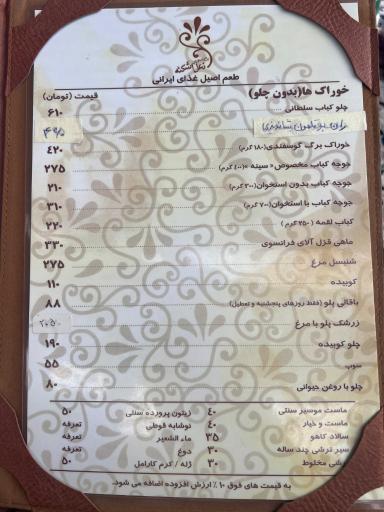 طعم اصیل غذای ایرانی
خوراک ها(بدون چلو) قیمت (تومان)
چلو کباب سلطانی ۶۱۰
خوراک برگ گوسفندی(۱۸۰ گرم) ۴۲۰
جوجه کباب مخصوص« سینه »(۴۰۰ گرم) ۲۷۵
جوجه کباب بدون استخوان(۳۰۰ گرم) ۲۱۰
جوجه کباب با استخوان(۷۰۰ گرم) ۳۱۰
کباب لقمه (۲۵۰ گرم) ۲۲۰
ماهی قزل آلای فرانسوی ۳۳۰
شنیسل مرغ ۲۷۵
کوبیده ۱۱۰
باقالی پلو (فقط روزهای پنجشنبه و تعطیل) ۸۸
زرشک پلو با مرغ ۲۰۵
چلو کوبیده ۱۹۰
سوپ ۵۵
چلو با روغن حیوانی ۸۰
ماست موسیر سنتی ۴۰ زیتون پرورده سنتی ۵۰
ماست و خیار ۴۰ نوشابه قوطی تعرفه
سالاد کاهو ۳۵ ماء الشعیر تعرفه
سیر ترشی چند ساله ۳۰ دوغ تعرفه
شی مخلوط ۳۰ ژله / کرم کارامل ۵۰
به قیمت های فوق ۱۰ ٪ ارزش افزوده اضافه می شود.